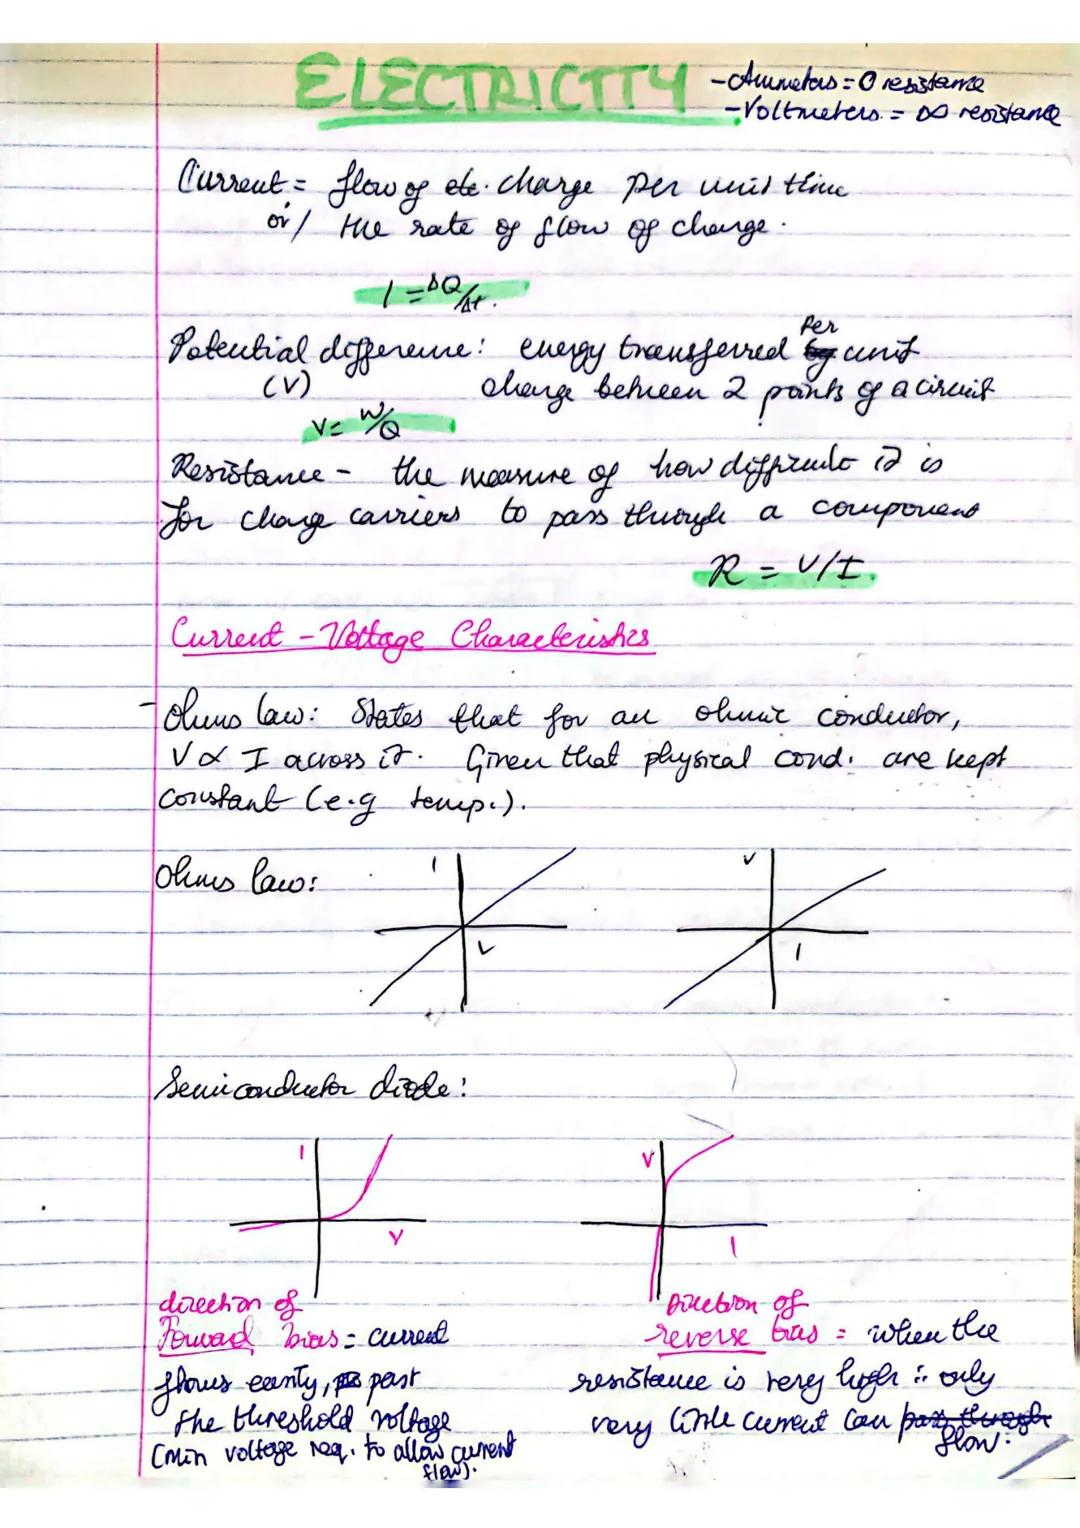 ELECTRICITY
-Ammeters = 0 resistance
-Voltmeters. = ∞ resistance
Current = flow of ele. charge per unit time
or / the rate of flow of charge.
I = ΔQ/Δt.
Potential difference: energy transferred by per unit
(V) charge between 2 points of a circuit
V= W/Q
Resistance - the measure of how difficult it is
for charge carriers to pass through a component
R = V/I.
Current - Voltage Characteristics
-Ohms law: States that for an ohmic conductor,
V ∝ I across it. Given that physical cond. are kept
constant (e.g temp.).
Ohms law:
I
V
V
I
Semiconductor diode:
I
V
V
I
direction of
Forward bias = current
flows easily, past
the threshold voltage
(min voltage req. to allow current
flow).
Direction of
reverse bias = when the
resistance is very high ∴ only
very little current can pass through
flow.